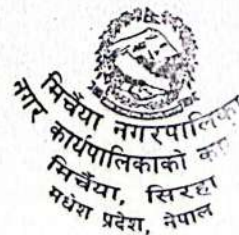 मिर्चैया नगरपालिका
नगर कार्यपालिकाको
मिर्चैया, सिरहा
मधेश प्रदेश, नेपाल